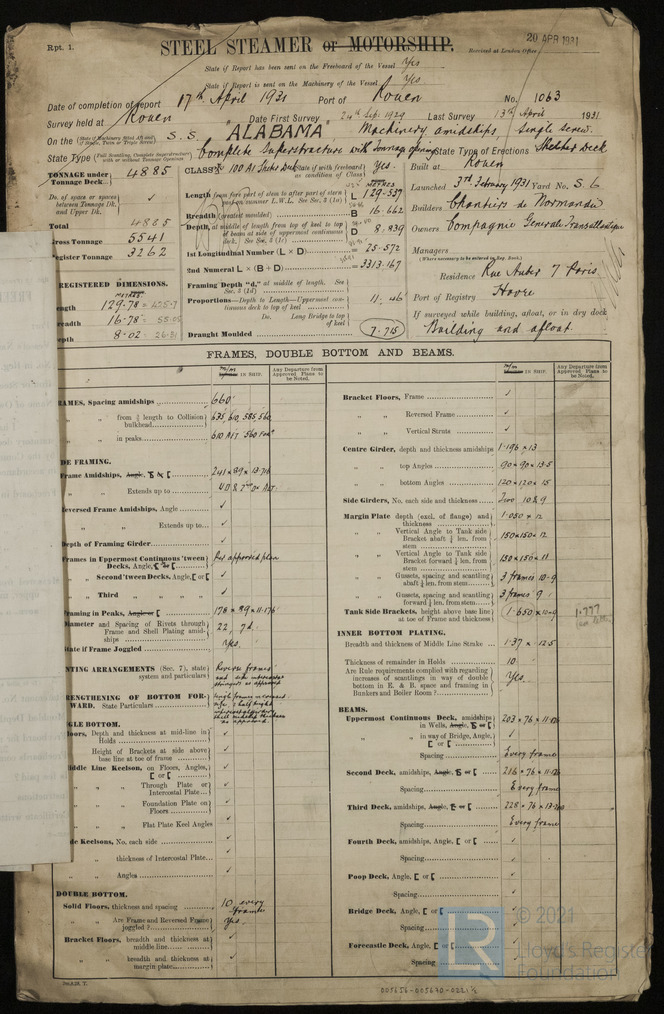 Rpt. 1.
STEEL STEAMER or MOTORSHIP.
20 APR 1931
Received at London Office
State if Report has been sent on the Freeboard of the Vessel Yes
State if Report is sent on the Machinery of the Vessel Yes
Date of completion of report 17th April 1931 Port of Rouen No. 1063
Survey held at Rouen Date First Survey 24th Sep. 1929 Last Survey 13th April 1931
On the S.S. "ALABAMA" Machinery amidships Single Screw.
State Type Complete Superstructure with tonnage opening State Type of Erections Shelter Deck
TONNAGE under Tonnage Deck 4885
CLASS 100 A1 Shelter Deck State if with freeboard as condition of Class Yes.
Built at Rouen
Do. of space or spaces between Tonnage Dk. and Upper Dk.
Total 4885
Gross Tonnage 5541
Register Tonnage 3262
Launched 3rd February 1931 Yard No. S. 6
Builders Chantiers de Normandie
Owners Compagnie Generale Transatlantique
Managers
(Where necessary to be entered in Reg. Book.)
Residence Rue Auber 7 Paris.
Port of Registry Havre
If surveyed while building, afloat, or in dry dock
Building and afloat
Length from fore part of stem to after part of stern post on summer L.W.L. See Sec. 3 (1a) L 129.537
Breadth (greatest moulded) B 16.662
Depth, at middle of length from top of keel to top of beam at side of uppermost continuous deck. See Sec. 3 (1c) D 8.839
1st Longitudinal Number (L × D) 25.572
2nd Numeral L × (B + D) 3313.167
Framing Depth "d," at middle of length. See Sec. 3 (1d)
Proportions—Depth to Length—Uppermost continuous deck to top of keel 11.46
Do. Long Bridge to top of keel
Draught Moulded 7.715
REGISTERED DIMENSIONS.
METRES.
129.78 = 425.7
16.78 = 55.05
8.02 = 26.31
FRAMES, DOUBLE BOTTOM AND BEAMS.
m/m IN SHIP. Any Departure from Approved Plans to be Noted.
FRAMES, Spacing amidships 660
" " from ⅕ length to Collision bulkhead 635, 610, 585, 560
" " in peaks 610 AFT 560 Fore
SIDE FRAMING.
Frame Amidships, Angle, 241 × 89 × 13.716
" " Extends up to
Reversed Frame Amidships, Angle
" " Extends up to
Depth of Framing Girder
Frames in Uppermost Continuous 'tween Decks, Angle, [ or [ Per approved plan
" Second 'tween Decks, Angle, [ or [
" Third " " " "
Framing in Peaks, Angle or [ 178 × 89 × 11.176
Diameter and Spacing of Rivets through Frame and Shell Plating amidships 22, 7d.
State if Frame Joggled Yes.
PANTING ARRANGEMENTS (Sec. 7), state system and particulars Reverse frames and side intercostal stringers as approved
STRENGTHENING OF BOTTOM FORWARD. State Particulars
SINGLE BOTTOM.
Floors, Depth and thickness at mid-line in Holds
Height of Brackets at side above base line at toe of frame
Middle Line Keelson, on Floors, Angles, [ or [
" " Through Plate or Intercostal Plate
" " Foundation Plate on Floors
" " Flat Plate Keel Angles
Side Keelsons, No. each side
" " thickness of Intercostal Plate
" " Angles
DOUBLE BOTTOM.
Solid Floors, thickness and spacing 10 every frame
" " Are Frame and Reversed Frame joggled? Yes.
Bracket Floors, breadth and thickness at middle line
" " breadth and thickness at margin plate
m/m IN SHIP. Any Departure from Approved Plans to be Noted.
Bracket Floors, Frame
" " Reversed Frame
" " Vertical Struts
Centre Girder, depth and thickness amidships 1.196 × 13
" " top Angles 90 × 90 × 13.5
" " bottom Angles 120 × 120 × 15
Side Girders, No. each side and thickness Two 10 & 9
Margin Plate depth (excl. of flange) and thickness 1.050 × 12
" " Vertical Angle to Tank side Bracket abaft ¼ len. from stem 150 × 150 × 12
" " Vertical Angle to Tank side Bracket forward ¼ len. from stem 150 × 150 × 11
" " Gussets, spacing and scantling abaft ¼ len. from stem 3 frames 10-9
" " Gussets, spacing and scantling forward ¼ len. from stem 3 frames 9
Tank Side Brackets, height above base line at toe of Frame and thickness 1.650 × 10-9 1.777
INNER BOTTOM PLATING.
Breadth and thickness of Middle Line Strake 1.37 × 12.5
Thickness of remainder in Holds 10
Are Rule requirements complied with regarding increases of scantlings in way of double bottom in E. & B. space and framing in Bunkers and Boiler Room? Yes.
BEAMS.
Uppermost Continuous Deck, amidships in Wells, Angle, [ or [ 203 × 76 × 11.176
" " in way of Bridge, Angle, [ or [
Spacing Every frame
Second Deck, amidships, Angle, [ or [ 216 × 76 × 11.176
Spacing Every frame
Third Deck, amidships, Angle, [ or [ 228 × 76 × 13.2
Spacing Every frame
Fourth Deck, amidships, Angle, [ or [
Spacing
Poop Deck, Angle, [ or [
Spacing
Bridge Deck, Angle, [ or [
Spacing
Forecastle Deck, Angle, [ or [
Spacing
© 2021
Lloyd's Register
Foundation
005656-005670-0221 ½